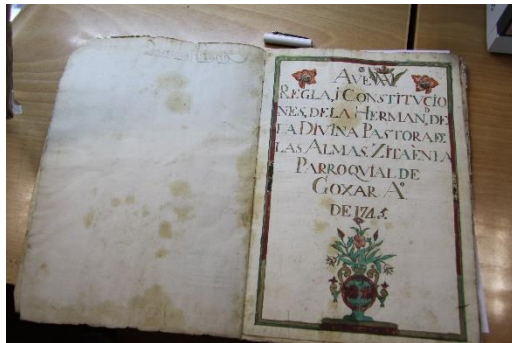 AVE MA
REGLA, I CONSTITVCIO
NES, DE LA HERMAN.D DE
LA DIVINA PASTORA, DE
LAS ALMAS. ZITA EN LA
PARROQVIAL DE
GOXAR A.º
DE 1745.